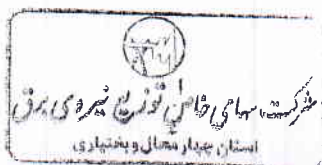 شرکت سهامی خاص توزیع نیروی برق
استان چهار محال و بختیاری